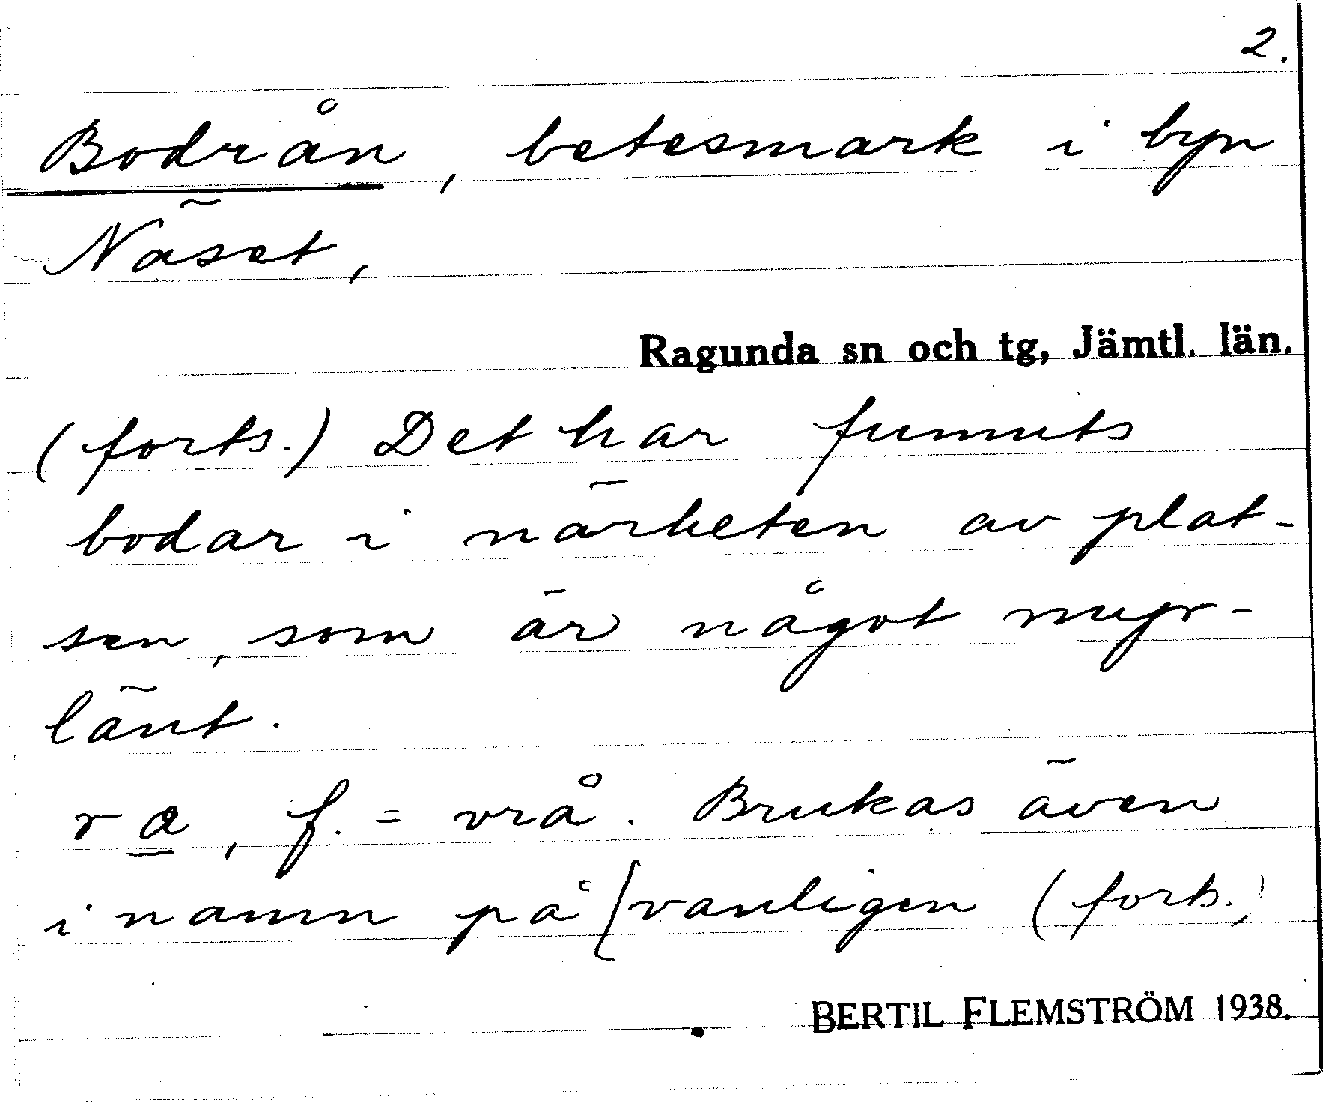 2.
Bodrån, betesmark i byn
Näset,
Ragunda sn och tg, Jämtl. län.
(forts.) Det har funnits
bodar i närheten av plat-
sen, som är något myr-
länt.
ra, f. = vrå. Brukas även
i namn på /vanligen (forts.)
BERTIL FLEMSTRÖM 1938.